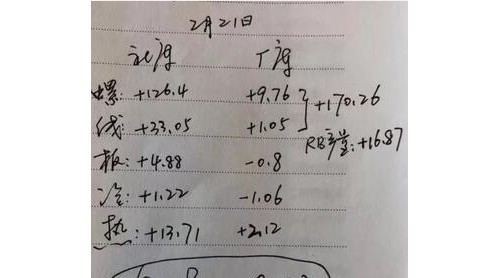 2月21日
社库 厂库
螺: +126.4 +9.76
+170.26
线: +33.05 +1.05
RB产量: +16.87
板: +4.88 -0.8
冷: +1.22 -1.06
热: +13.71 +2.12